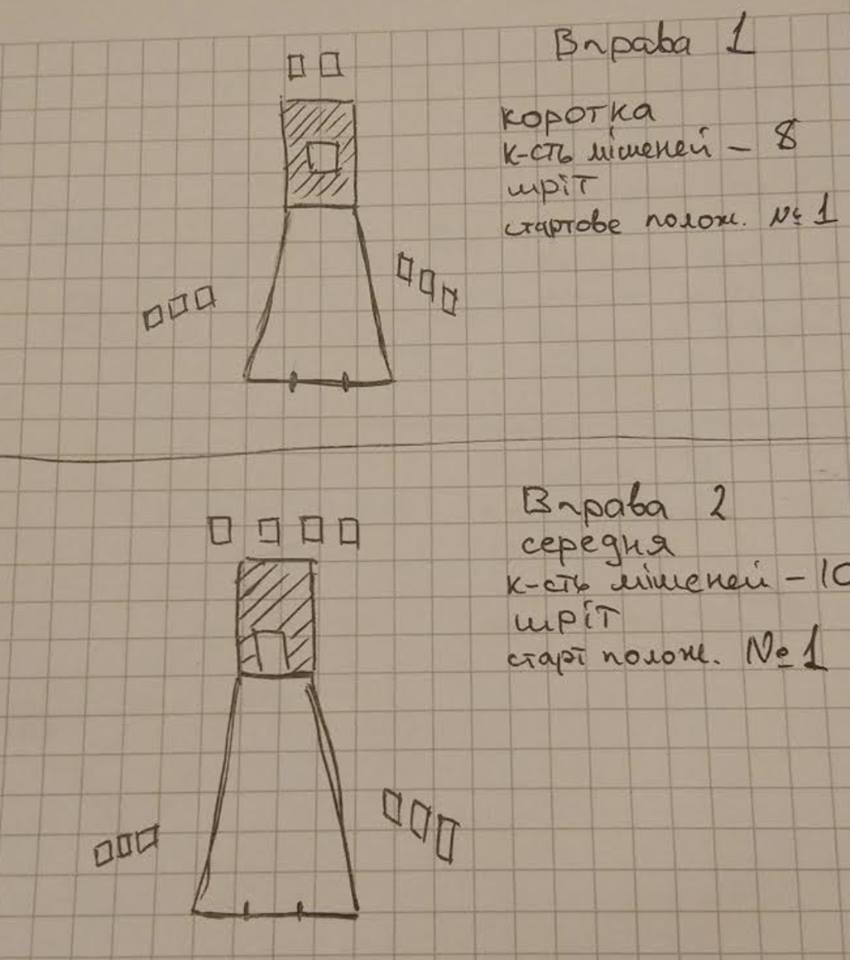 Вправа 1
коротка
к-сть мішеней – 8
шріт
стартове полож. № 1
Вправа 2
середня
к-сть мішеней – 10
шріт
старт полож. № 1